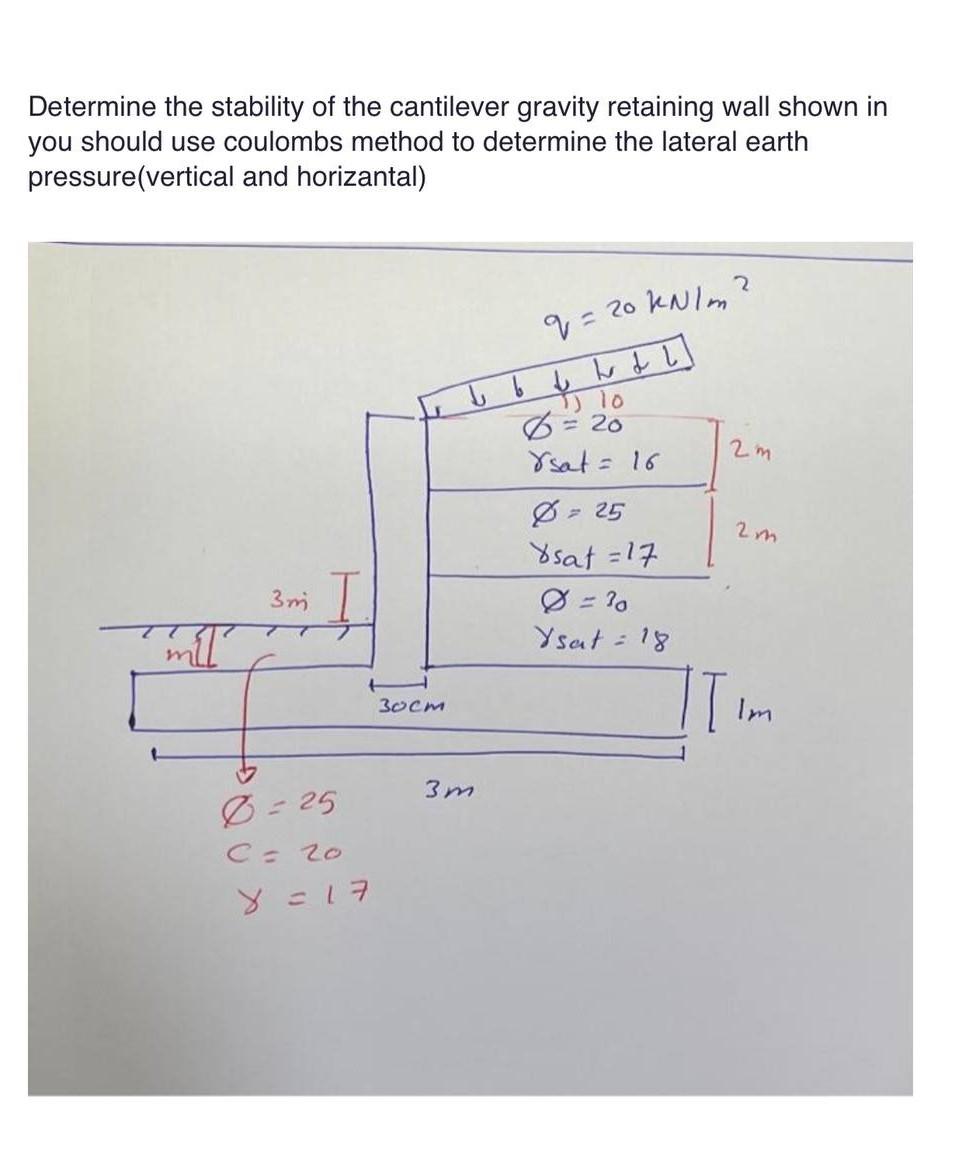 Determine the stability of the cantilever gravity retaining wall shown in
you should use coulombs method to determine the lateral earth
pressure(vertical and horizantal)
q = 20 kN/m²
10
Ø = 20
γsat = 16
2m
Ø = 25
γsat = 17
2m
Ø = 30
γsat = 18
3m
30cm
1m
3m
Ø = 25
C = 20
γ = 17